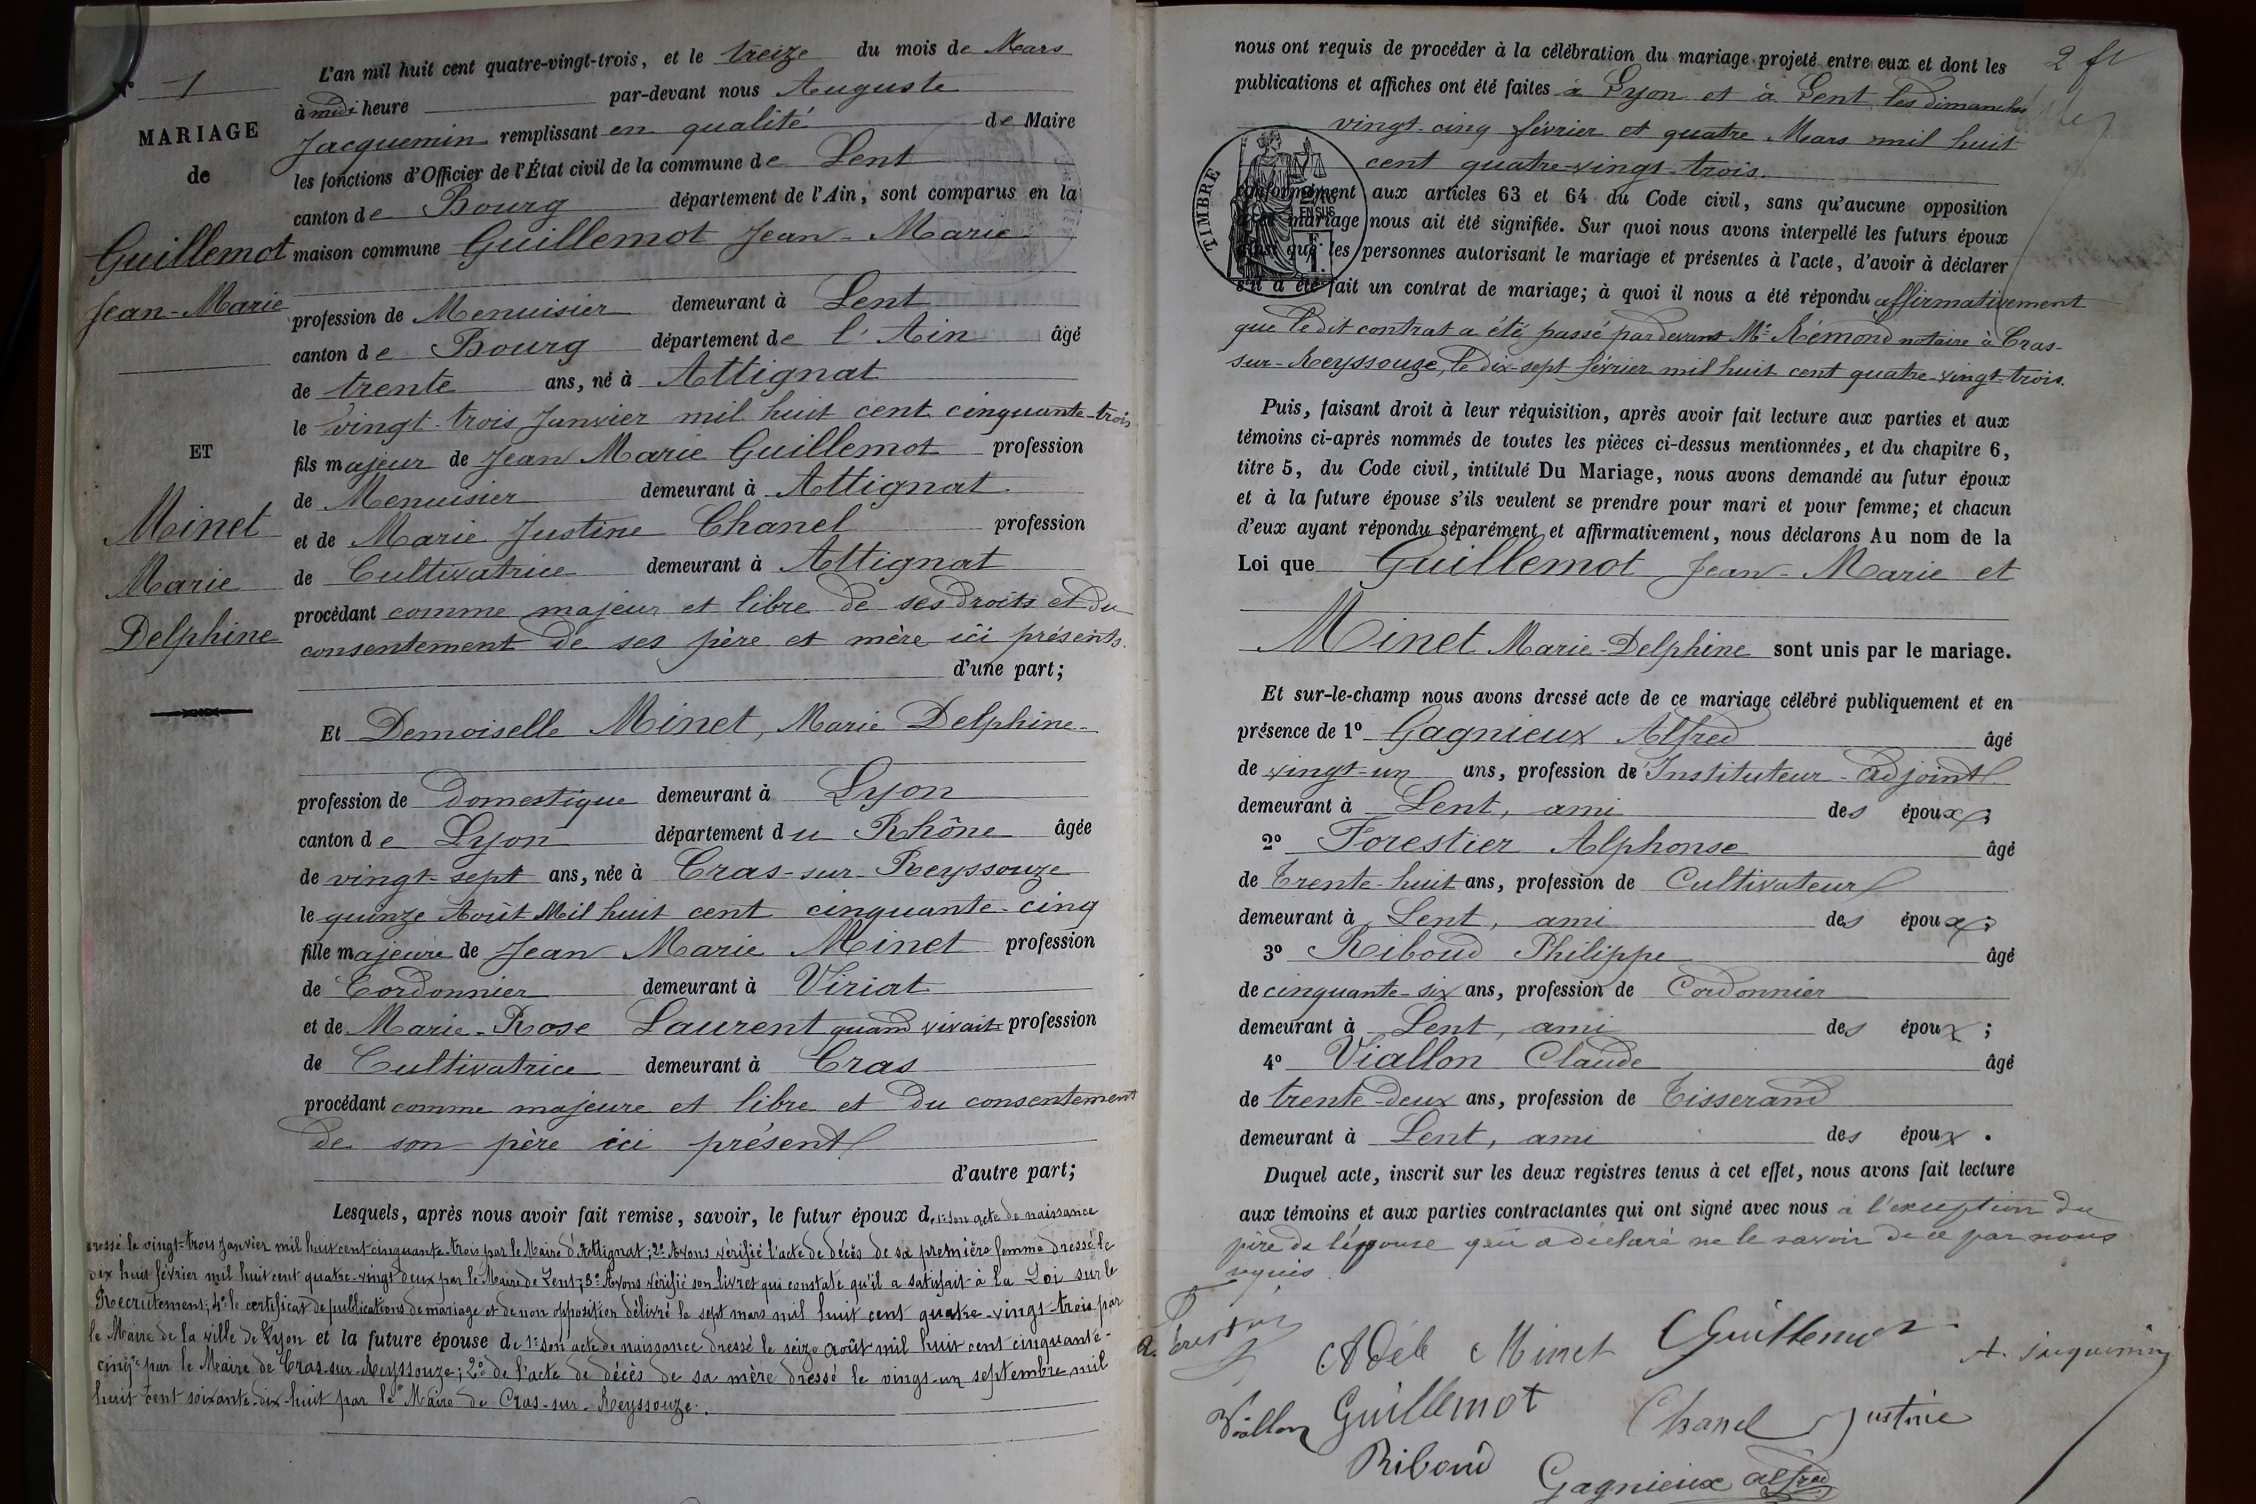 1
MARIAGE
de
Guillemot
Jean-Marie
ET
Minet
Marie
Delphine
L'an mil huit cent quatre-vingt-trois, et le treize du mois de Mars
à midi heure par-devant nous Auguste
Jacquemin remplissant en qualité de Maire
les fonctions d'Officier de l'État civil de la commune de Lent
canton de Bourg département de l'Ain, sont comparus en la
maison commune Guillemot Jean-Marie
profession de Menuisier demeurant à Lent
canton de Bourg département de l'Ain âgé
de trente ans, né à Attignat
le vingt-trois Janvier mil huit cent cinquante-trois
fils majeur de Jean Marie Guillemot profession
de Menuisier demeurant à Attignat
et de Marie Justine Chanel profession
de Cultivatrice demeurant à Attignat
procédant comme majeur et libre de ses droits et du
consentement de ses père et mère ici présents.
d'une part;
Et Demoiselle Minet, Marie Delphine
profession de domestique demeurant à Lyon
canton de Lyon département du Rhône âgée
de vingt-sept ans, née à Cras-sur-Reyssouze
le quinze Août Mil huit cent cinquante-cinq
fille majeure de Jean Marie Minet profession
de Cordonnier demeurant à Viriat
et de Marie-Rose Laurent quand vivait profession
de Cultivatrice demeurant à Cras
procédant comme majeure et libre et du consentement
de son père ici présent
d'autre part;
Lesquels, après nous avoir fait remise, savoir, le futur époux de 1º son acte de naissance
dressé le vingt-trois Janvier mil huit cent cinquante-trois par le Maire d'Attignat; 2º Avons vérifié l'acte de décès de sa première femme dressé le
dix huit février mil huit cent quatre-vingt deux par le Maire de Lent; 3º Avons vérifié son livret qui constate qu'il a satisfait à la Loi sur le
Recrutement; 4º le certificat de publications de mariage et de non opposition délivré le sept mars mil huit cent quatre-vingt-trois par
le Maire de la ville de Lyon et la future épouse de 1º son acte de naissance dressé le seize août mil huit cent cinquante-
cinq par le Maire de Cras-sur-Reyssouze; 2º de l'acte de décès de sa mère dressé le vingt-un septembre mil
huit cent soixante-dix-huit par le Maire de Cras-sur-Reyssouze.
2 ft
nous ont requis de procéder à la célébration du mariage projeté entre eux et dont les
publications et affiches ont été faites à Lyon et à Lent les dimanches
vingt-cinq février et quatre Mars mil huit
cent quatre-vingt-trois.
TIMBRE
EN SUS
conformément aux articles 63 et 64 du Code civil, sans qu'aucune opposition
mariage nous ait été signifiée. Sur quoi nous avons interpellé les futurs époux
ainsi que les personnes autorisant le mariage et présentes à l'acte, d'avoir à déclarer
s'il a été fait un contrat de mariage; à quoi il nous a été répondu affirmativement
que ledit contrat a été passé par devant Me Rémond notaire à Cras-
sur-Reyssouze, le dix-sept février mil huit cent quatre-vingt-trois.
Puis, faisant droit à leur réquisition, après avoir fait lecture aux parties et aux
témoins ci-après nommés de toutes les pièces ci-dessus mentionnées, et du chapitre 6,
titre 5, du Code civil, intitulé Du Mariage, nous avons demandé au futur époux
et à la future épouse s'ils veulent se prendre pour mari et pour femme; et chacun
d'eux ayant répondu séparément et affirmativement, nous déclarons Au nom de la
Loi que Guillemot Jean-Marie et
Minet Marie-Delphine sont unis par le mariage.
Et sur-le-champ nous avons dressé acte de ce mariage célébré publiquement et en
présence de 1º Gagnieux Alfred âgé
de vingt-un ans, profession de Instituteur-adjoint
demeurant à Lent, ami des époux;
2º Forestier Alphonse âgé
de Trente-huit ans, profession de Cultivateur
demeurant à Lent, ami des époux;
3º Riboud Philippe âgé
de cinquante-six ans, profession de Cordonnier
demeurant à Lent, ami des époux;
4º Viallon Claude âgé
de trente-deux ans, profession de Tisserand
demeurant à Lent, ami des époux.
Duquel acte, inscrit sur les deux registres tenus à cet effet, nous avons fait lecture
aux témoins et aux parties contractantes qui ont signé avec nous à l'exception du
père de l'épouse qui a déclaré ne le savoir de ce par nous
requis.
Adèle Minet Guillemot A. Jacquemin
Viallon Guillemot Chanel Justine
Riboud Gagnieux alfred